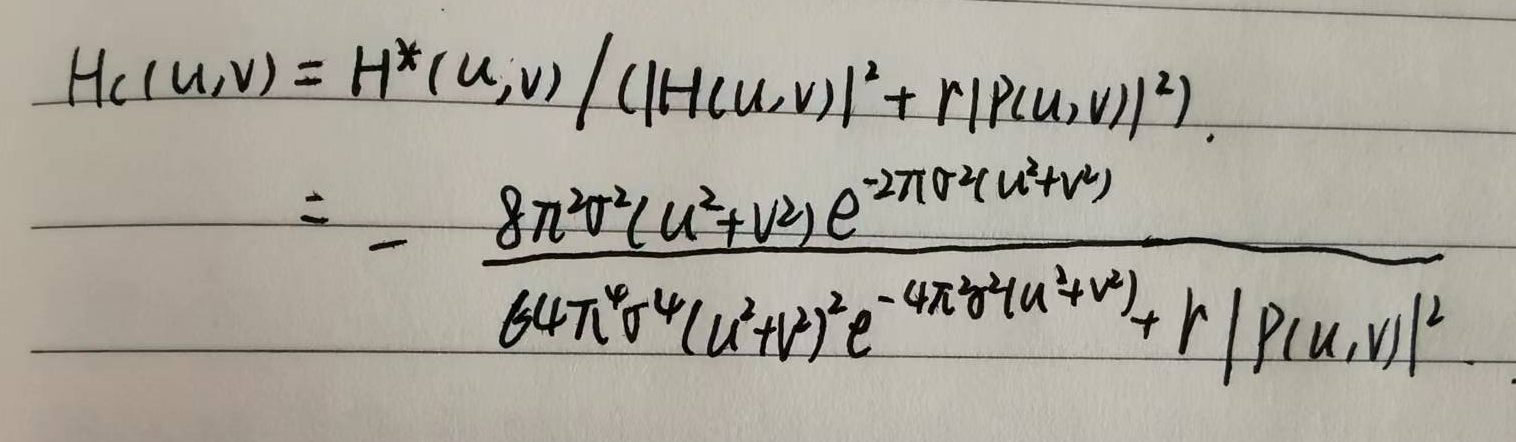 Hc(u,v) = H*(u,v) / (|H(u,v)|² + r|P(u,v)|²).
= - 8π²σ²(u²+v²)e^{-2πσ²(u²+v²)} / 64π⁴σ⁴(u²+v²)²e^{-4π²σ²(u²+v²)} + r|P(u,v)|².